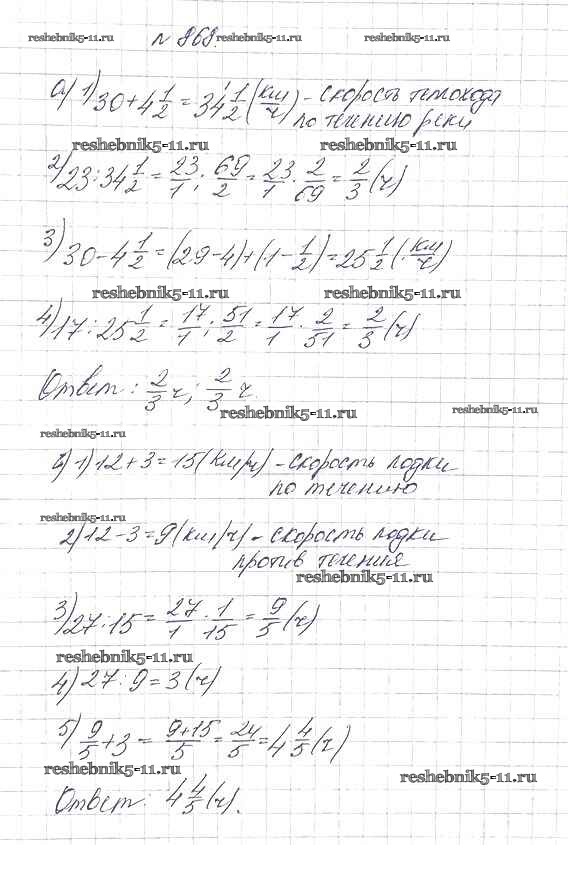 reshebnik5-11.ru № 868. reshebnik5-11.ru reshebnik5-11.ru
а) 1) 30 + 4 1/2 = 34 1/2 (км/ч) - скорость теплохода
по течению реки
reshebnik5-11.ru reshebnik5-11.ru
2) 23 : 34 1/2 = 23/1 : 69/2 = 23/1 · 2/69 = 2/3 (ч)
3) 30 - 4 1/2 = (29 - 4) + (1 - 1/2) = 25 1/2 (км/ч)
reshebnik5-11.ru reshebnik5-11.ru
4) 17 : 25 1/2 = 17/1 : 51/2 = 17/1 · 2/51 = 2/3 (ч)
Ответ: 2/3 ч; 2/3 ч.
reshebnik5-11.ru reshebnik5-11.ru
reshebnik5-11.ru
б) 1) 12 + 3 = 15 (км/ч) - скорость лодки
по течению
reshebnik5-11.ru
2) 12 - 3 = 9 (км/ч) - скорость лодки
против течения
reshebnik5-11.ru
3) 27 : 15 = 27/1 · 1/15 = 9/5 (ч)
reshebnik5-11.ru
4) 27 : 9 = 3 (ч)
5) 9/5 + 3 = 9+15/5 = 24/5 = 4 4/5 (ч)
reshebnik5-11.ru reshebnik5-11.ru
Ответ: 4 4/5 (ч).